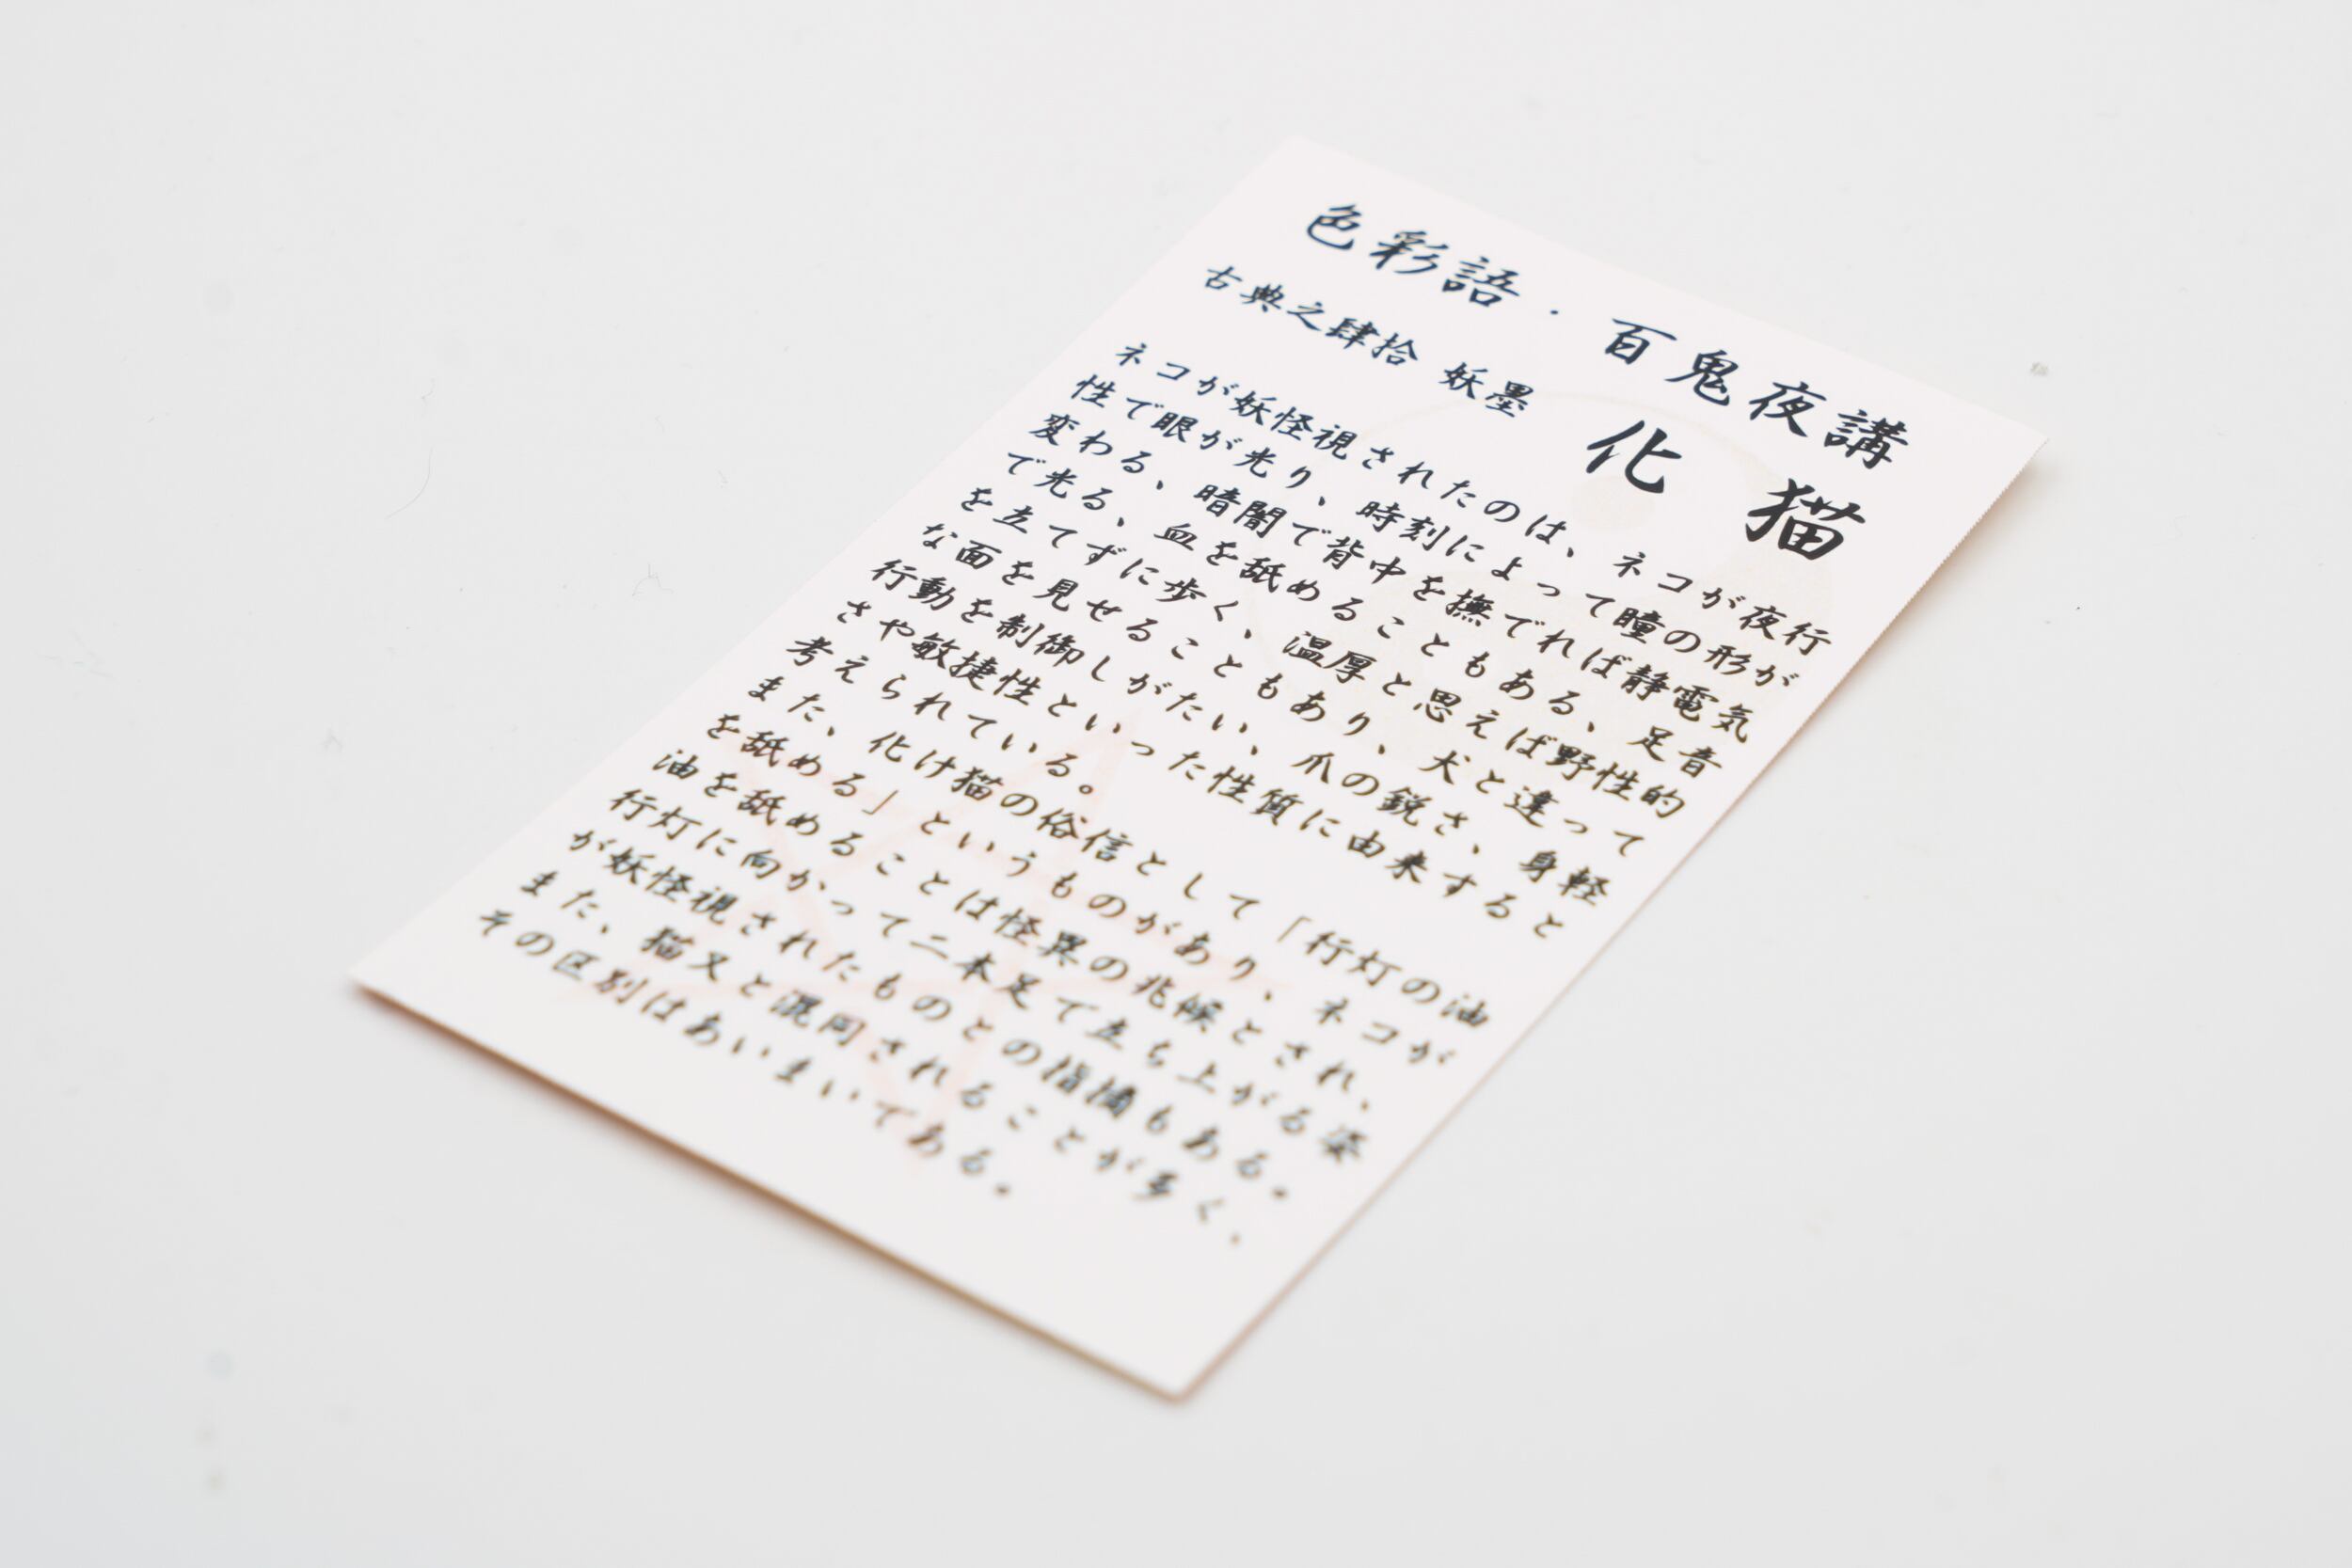 色彩語・百鬼夜講
古典之肆拾 妖墨 化 猫
ネコが妖怪視されたのは、ネコが夜行
性で眼が光り、時刻によって瞳の形が
変わる、暗闇で背中を撫でれば静電気
で光る、血を舐めることもある、足音
を立てずに歩く、温厚と思えば野性的
な面を見せることもあり、犬と違って
行動を制御しがたい、爪の鋭さ、身軽
さや敏捷性といった性質に由来すると
考えられている。
また、化け猫の俗信として「行灯の油
を舐める」というものがあり、ネコが
油を舐めることは怪異の兆候とされ、
行灯に向かって二本足で立ち上がる姿
が妖怪視されたものとの指摘もある。
また、猫又と混同されることが多く、
その区別はあいまいである。